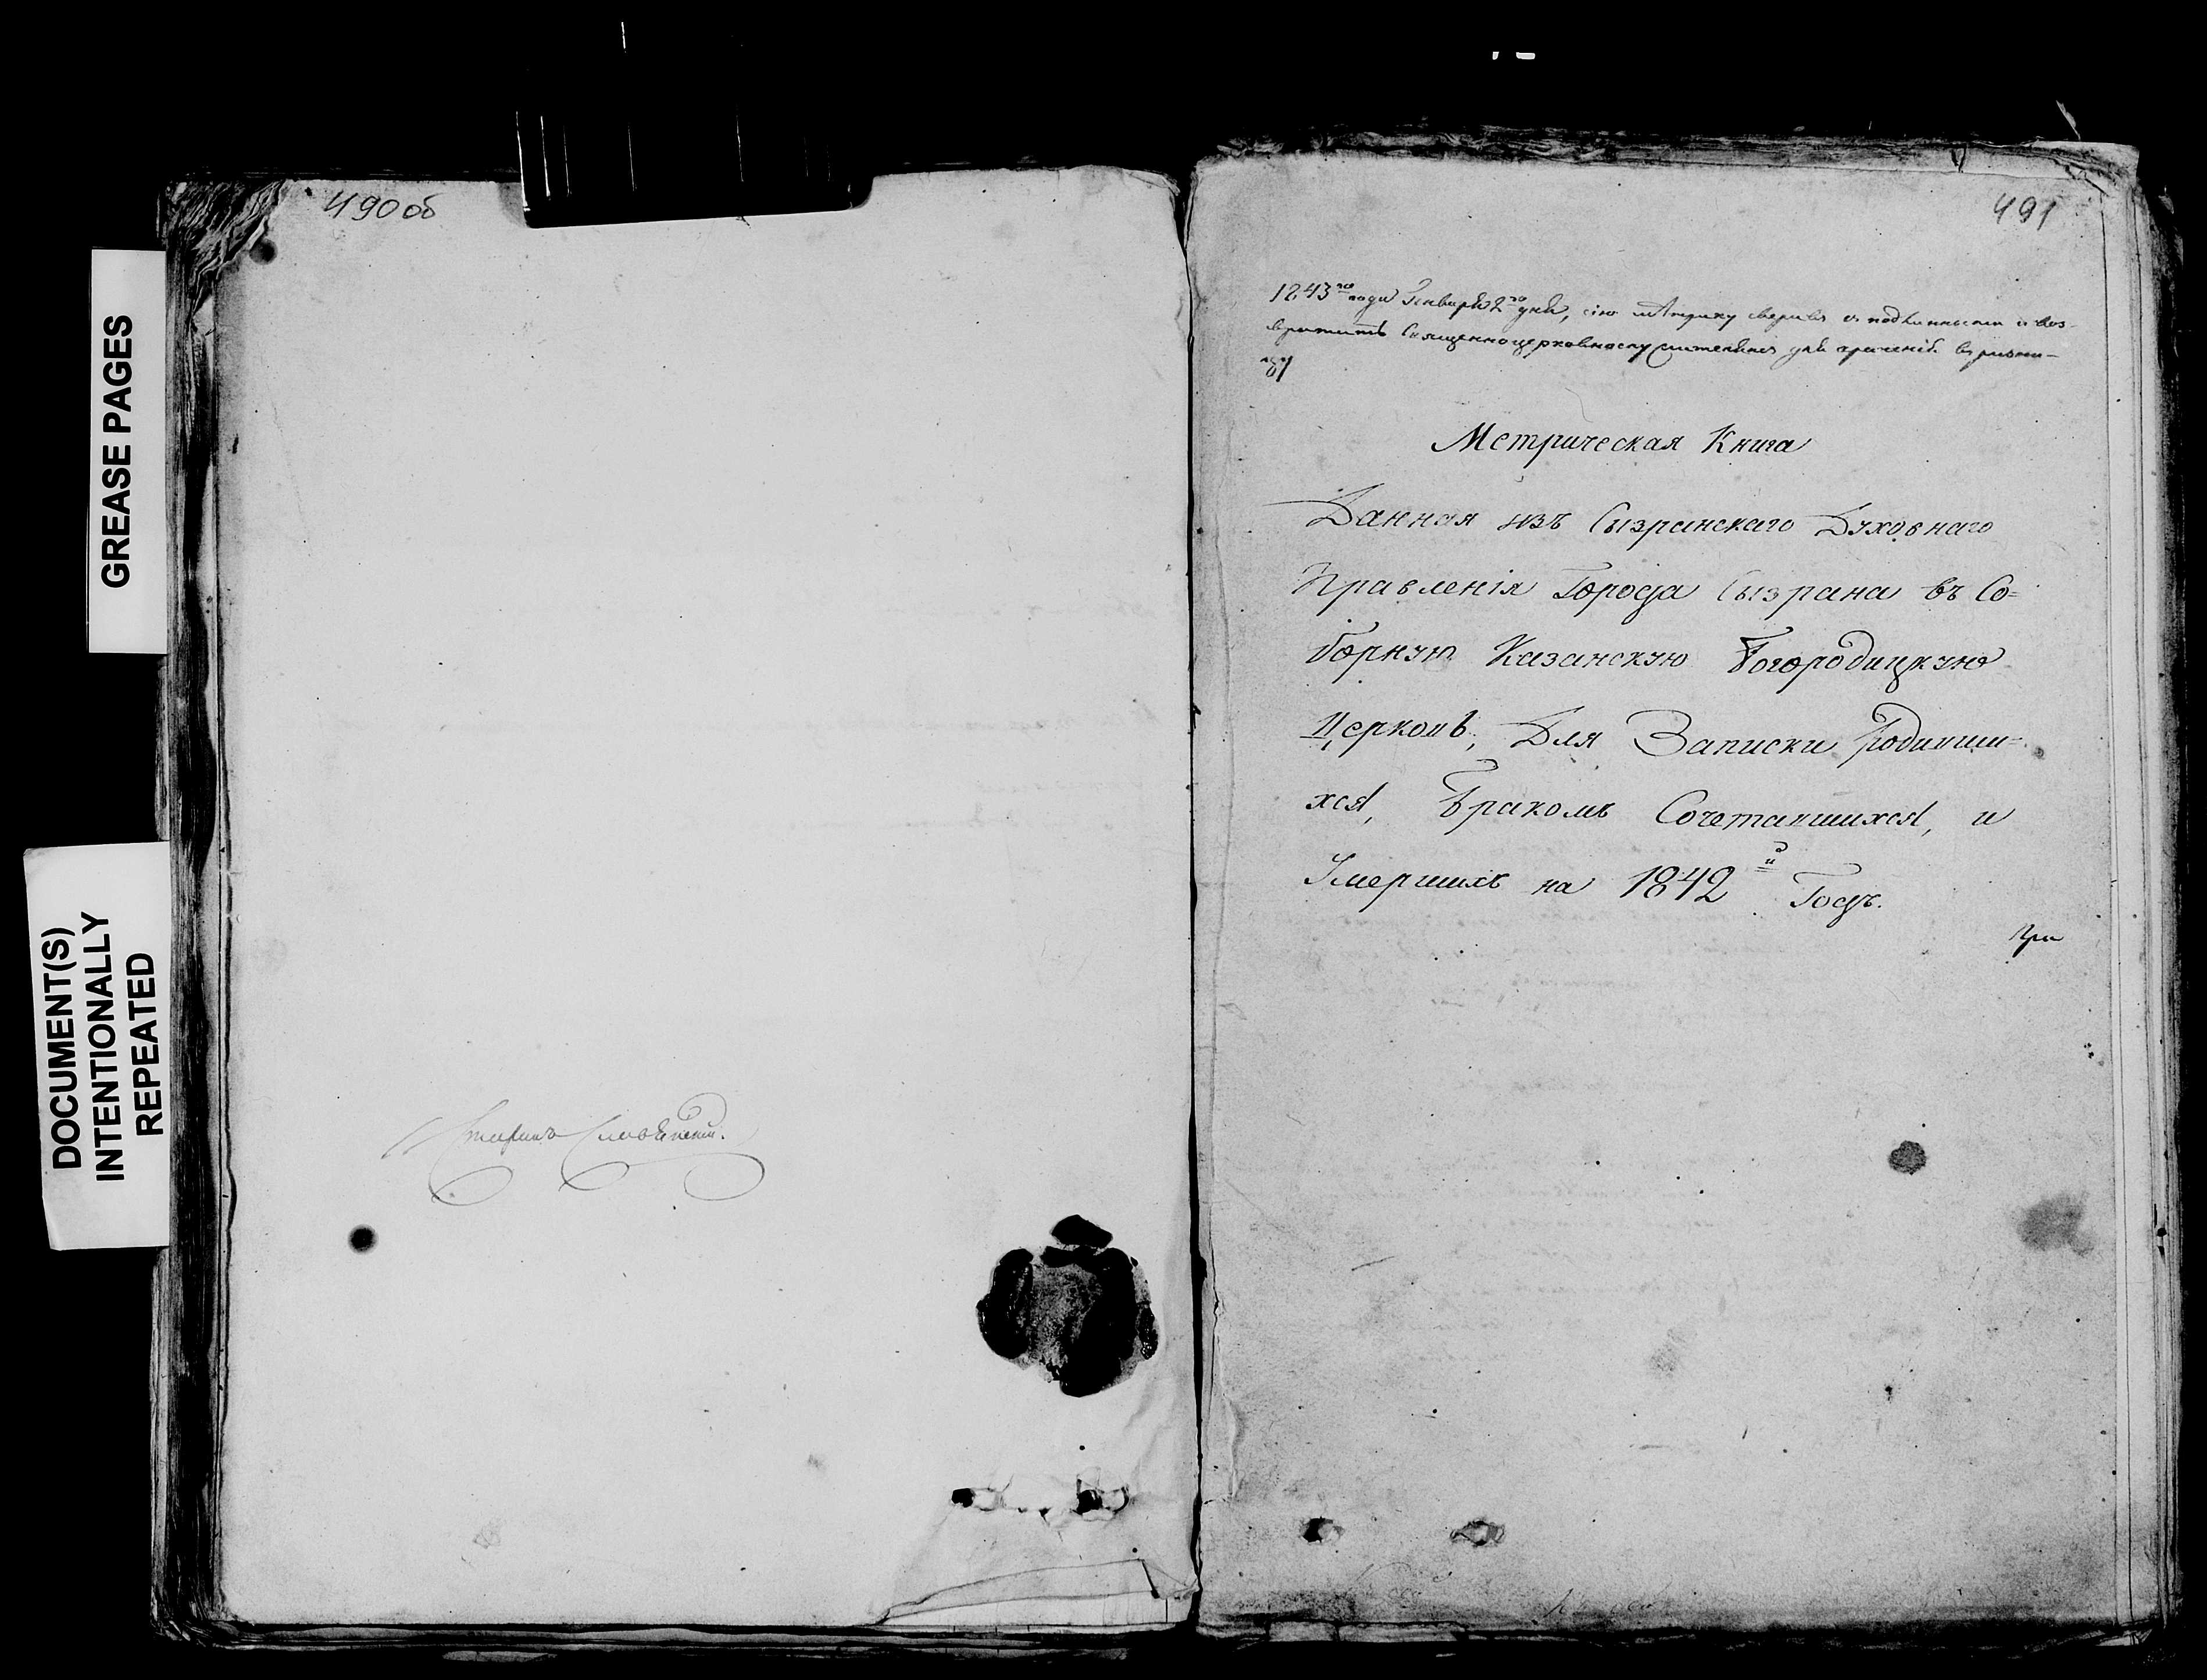 GREASE PAGES
DOCUMENT(S)
INTENTIONALLY
REPEATED
490об
491
1843го года Генваря 2го дня, сію метрику сверивъ съ подлинными и воз-
вратить Священноцерковнослужителямъ для храненія въ
Метрическая Книга
Данная изъ Сызранскаго Духовнаго
Правленія Города Сызрана въ Со=
борную Казанскую Богородицкую
Церковь, Для Записки Родивши=
хся, Бракомъ Сочетавшихся, и
Умершихъ на 1842й Годъ.
При